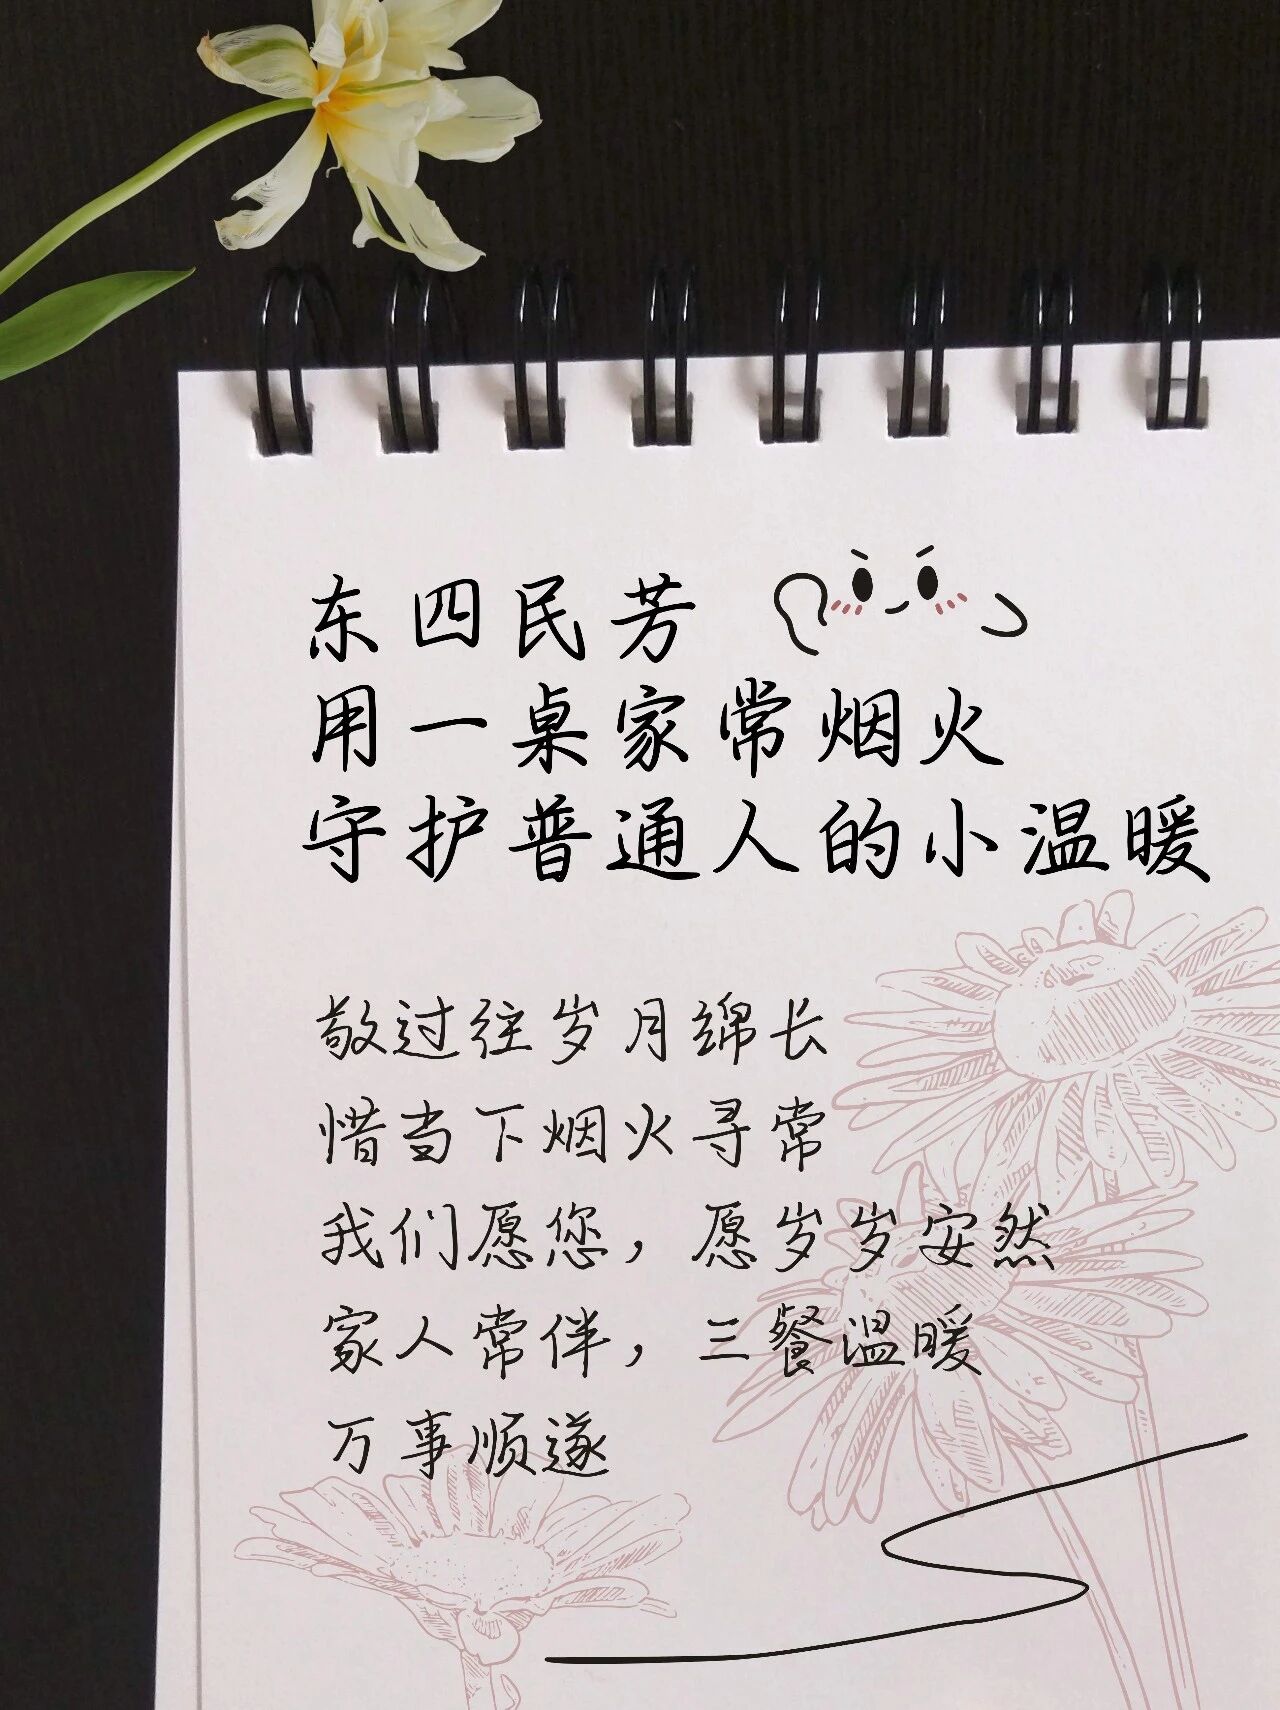 东四民芳
用一桌家常烟火
守护普通人的小温暖
敬过往岁月绵长
惜当下烟火寻常
我们愿您，愿岁岁安然
家人常伴，三餐温暖
万事顺遂